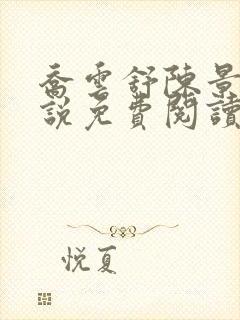 喬雲舒陳景
說免費閱讀
悅夏